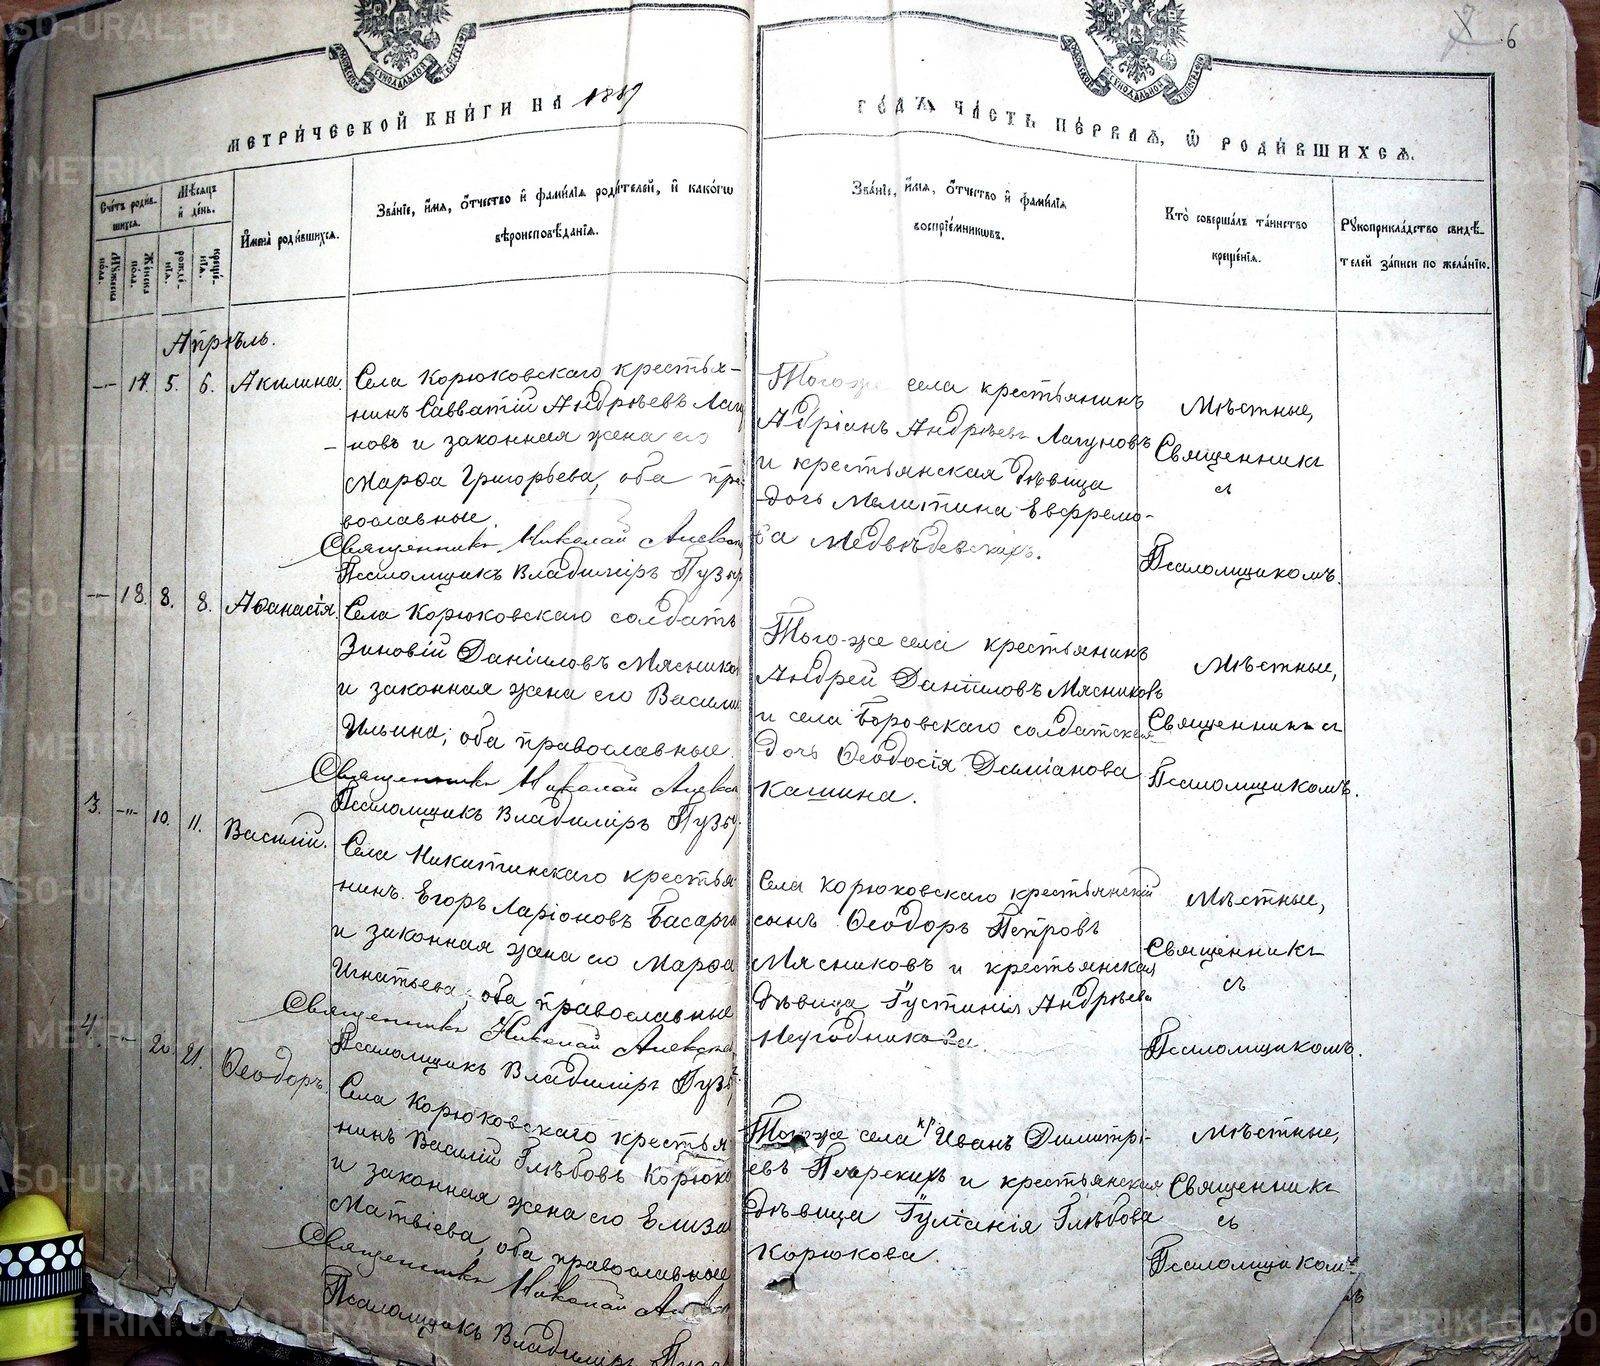 МЕТРИЧЕСКОЙ КНИГИ НА 1887
ГОДЪ ЧАСТЬ ПЕРВАЯ, Ѿ РОДИВШИХСЯ.
6
Счетъ родив-
шихся.
Мѣсяцъ
и день.
Мужеска
пола.
Женска
пола.
рожде-
нія.
креще-
нія.
Имена родившихся.
Званіе, имя, отчество и фамилія родителей, и какогѡ
вѣроисповѣданія.
Званіе, имя, отчество и фамилія
воспріемниковъ.
Кто совершалъ таинство
крещенія.
Рукоприкладство свидѣ-
телей записи по желанію.
Апрѣль.
17. 5. 6. Акилина.
Села Корюковскаго крестья-
нинъ Савватій Андрѣевъ Лагу
новъ и законная жена его
Марѳа Григорьева, оба пра-
вославные.
Священникъ Николай
Псаломщикъ Владиміръ
Того-же села крестьянинъ
Адріанъ Андрѣевъ Лагуновъ
и крестьянская дѣвица
дочь Мелитина Евфремо-
ва Медвѣдевскихъ.
Мѣстные,
Священникъ
съ
Псаломщикомъ.
18. 8. 8. Аѳанасія.
Села Корюковскаго солдатъ
Зиновій Даніиловъ Мяснико
и законная жена его Васили
Ильина; оба православные.
Священникъ Николай
Псаломщикъ Владиміръ
Того-же села крестьянинъ
Андрей Даніиловъ Мясниковъ
и села Боровскаго солдатская
дочь Ѳеодосія Даміанова
Кашина.
Мѣстные,
Священникъ съ
Псаломщикомъ.
3. -"- 10. 11. Василій.
Села Никитинскаго крестья
нинъ Егоръ Ларіоновъ Басарги
и законная жена его Марѳа
Игнатьева; оба православные
Священникъ Николай
Псаломщикъ Владиміръ
Села Корюковскаго крестьянскій
сынъ Ѳеодоръ Петровъ
Мясниковъ и крестьянская
дѣвица Іустинія Андрѣева
Неугодникова.
Мѣстные,
Священникъ
съ
Псаломщикомъ.
4. -"- 20. 21. Ѳеодоръ.
Села Корюковскаго крестья
нинъ Василій Глѣбовъ Корюко
и законная жена его Елиза
Матвіева, оба православные
Священникъ Николай
Псаломщикъ Владиміръ
Того-же села кр. Иванъ Димитрі-
евъ и крестьянская
дѣвица Глѣбова
Корюкова.
Мѣстные,
Священникъ
съ
Псаломщикомъ